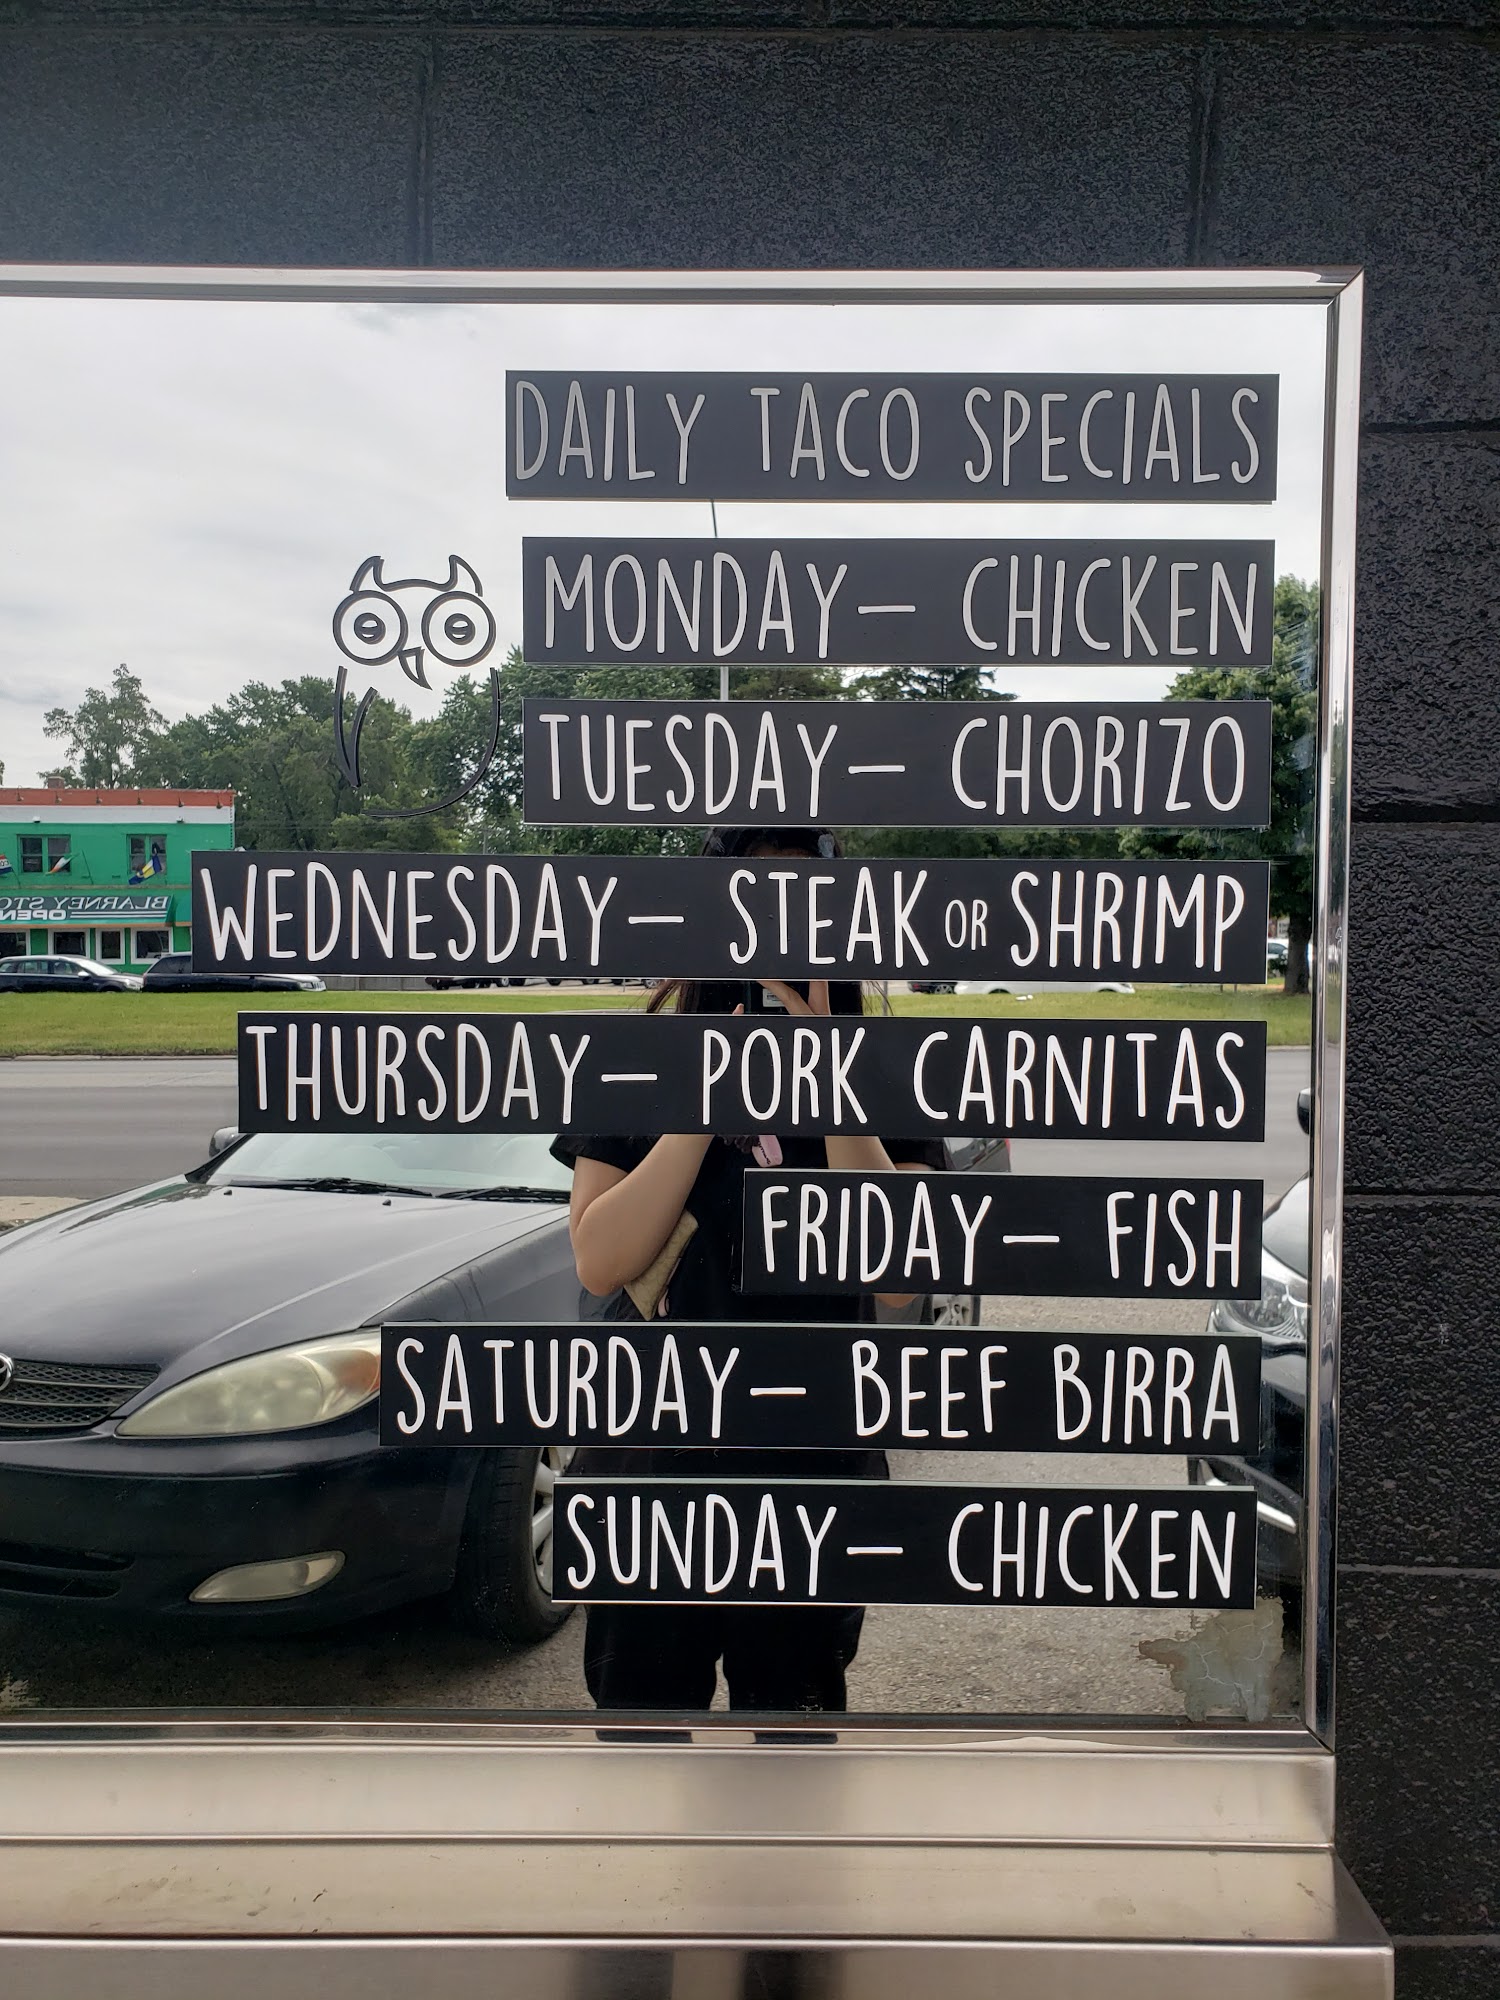 DAILY TACO SPECIALS
MONDAY— CHICKEN
TUESDAY— CHORIZO
WEDNESDAY— STEAK OR SHRIMP
THURSDAY— PORK CARNITAS
FRIDAY— FISH
SATURDAY— BEEF BIRRA
SUNDAY— CHICKEN
BLARNEY STO
OPEN